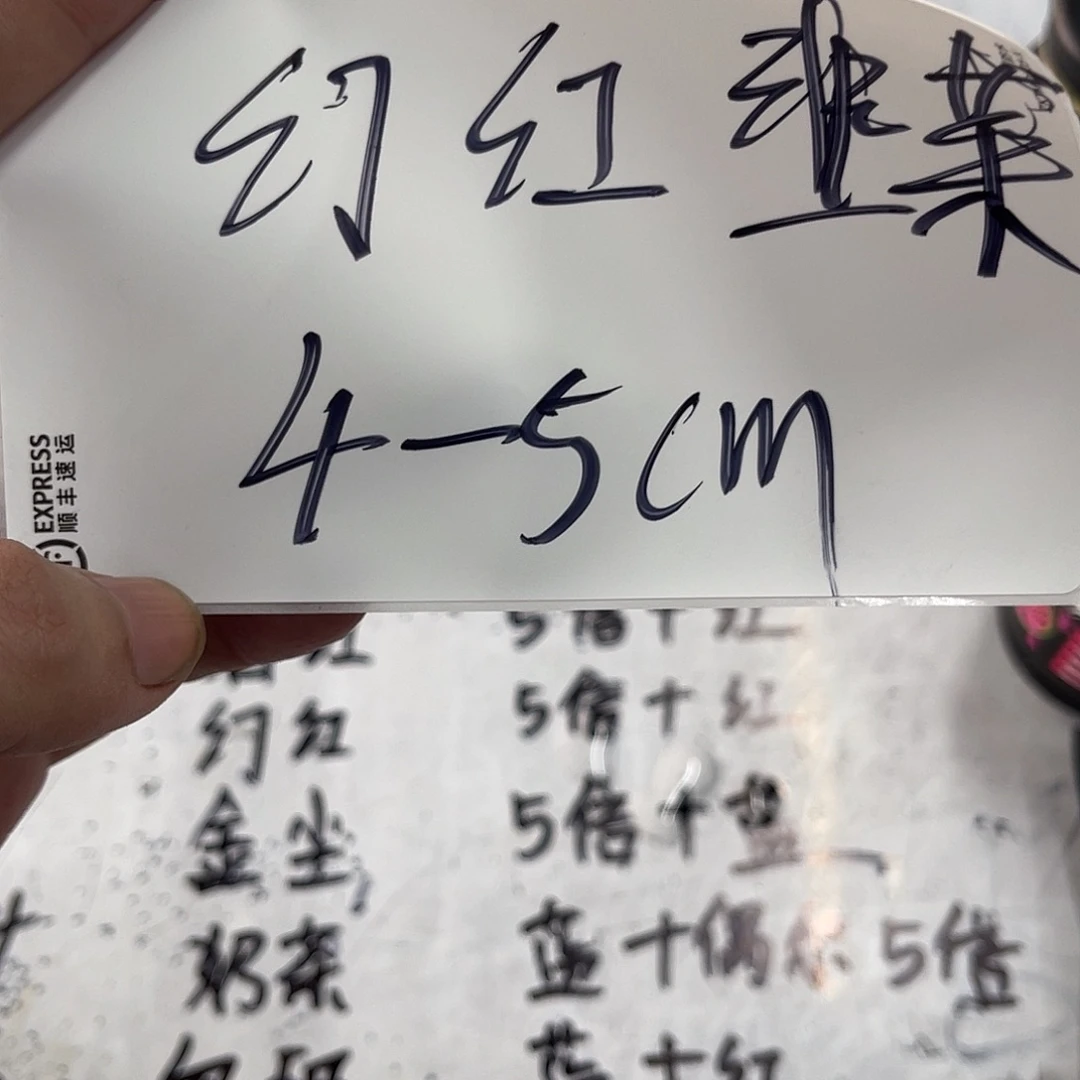 幻红韭菜
4-5cm
EXPRESS
顺丰速运
红 5倍+红
幻红 5倍+红
金尘 5倍+蓝
奶茶 蓝+偶尔5倍
蓝+红